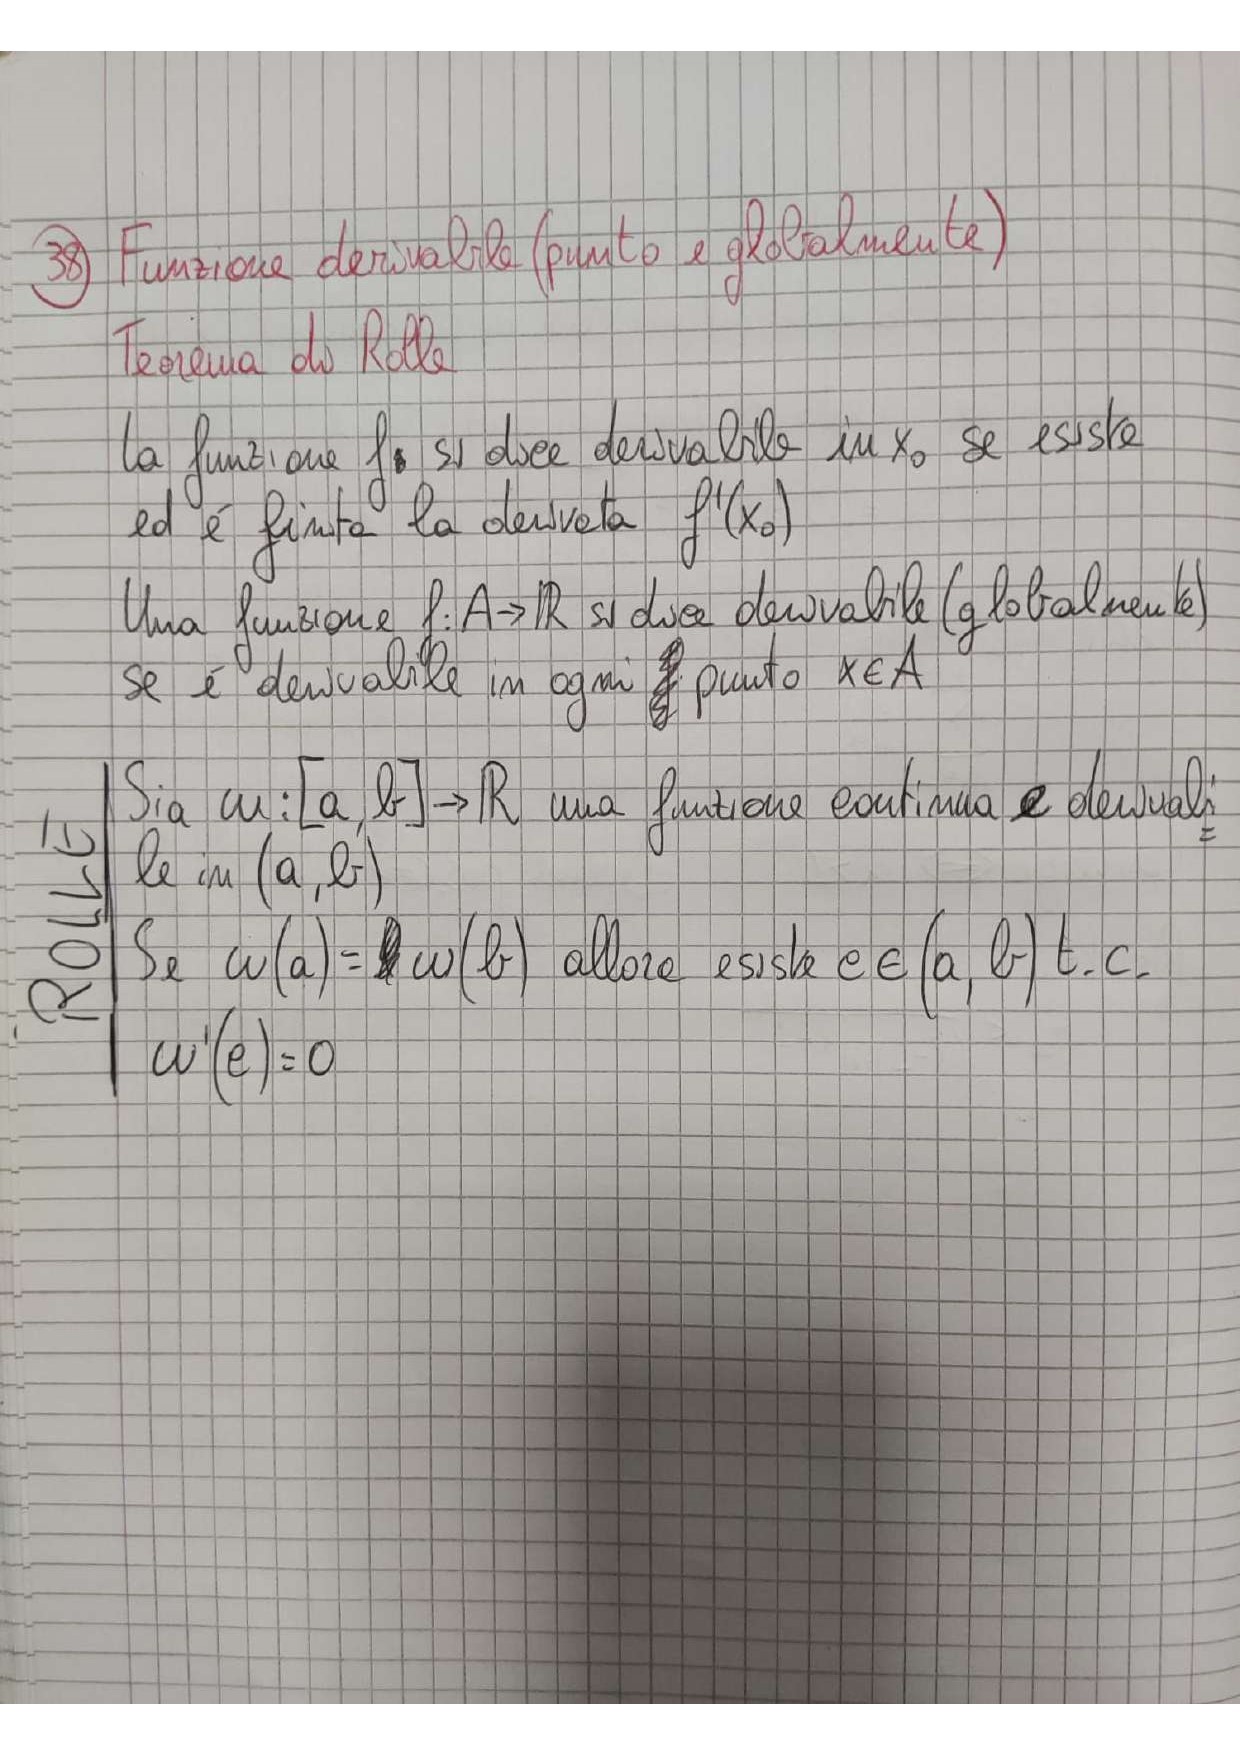 38 Funzione derivabile (punto e globalmente)
Teorema di Rolle
la funzione f si dice derivabile in x₀ se esiste
ed é finita la derivata f'(x₀)
Una funzione f: A→ℝ si dice derivabile (globalmente)
se é derivabile in ogni punto x∈A
ROLLE
Sia w:[a,b]→ℝ una funzione continua e derivabi=
le in (a,b)
Se w(a)=w(b) allora esiste c∈(a,b) t.c.
w'(c)=0